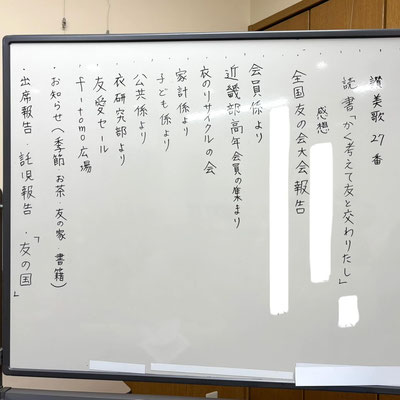 讃美歌 27番
読書「かく考えて友と交わりたし」
感想
全国友の会大会報告
会員係より
近畿部高年会員の集まり
衣のリサイクルの会
家計係より
子ども係より
公共係より
衣研究部より
友愛セール
・fーtomo広場
・お知らせ(季節・お茶・友の家 書籍)
・出席報告・託児報告・「友の国」